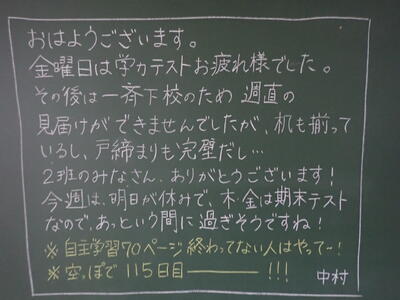 おはようございます。
金曜日は学力テストお疲れ様でした。
その後は一斉下校のため 週直の
見届けができませんでしたが、机も揃って
いるし、戸締まりも完璧だし…
2班のみなさん、ありがとうございます!
今週は、明日が休みで、木・金は期末テスト
なので、あっという間に過ぎそうですね!
※自主学習70ページ終わってない人はやって~!
※空っぽで 115日目――!!!
中村